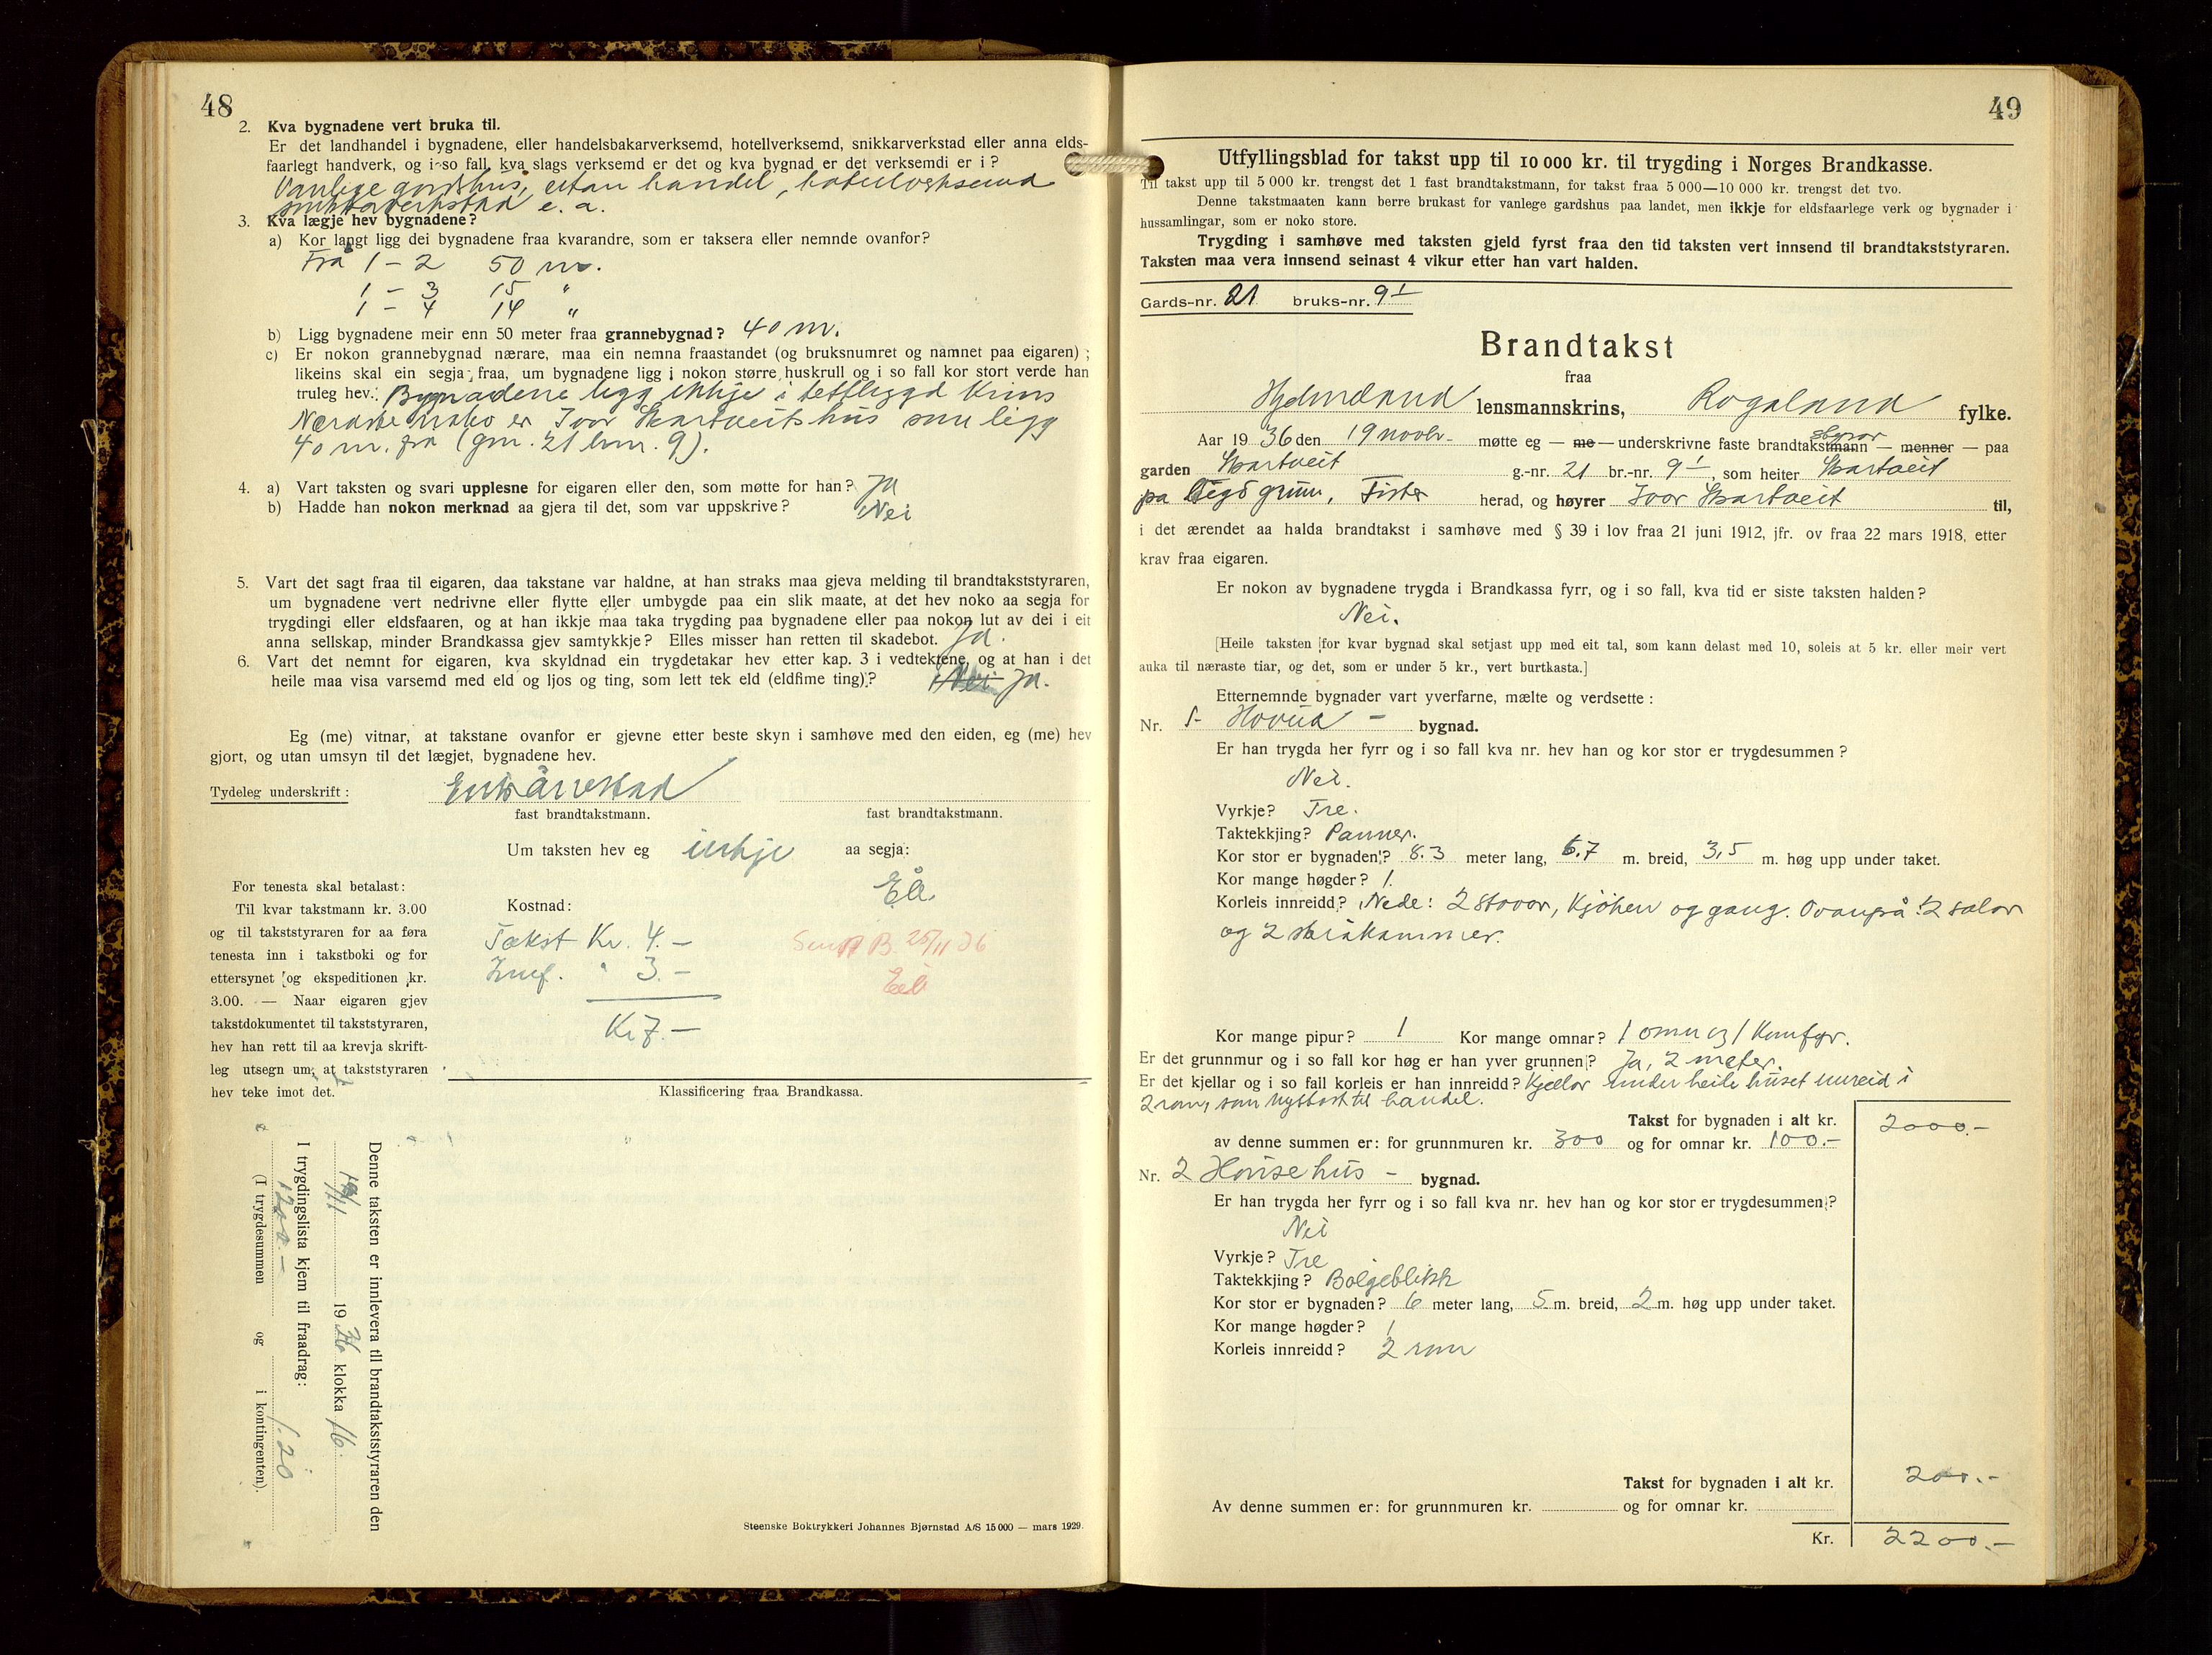 48
2. Kva bygnadene vert bruka til.
Er det landhandel i bygnadene, eller handelsbakarverksemd, hotellverksemd, snikkarverkstad eller anna elds-
faarlegt handverk, og i so fall, kva slags verksemd er det og kva bygnad er det verksemdi er i?
Vanlege gardshus, utan handel, hotellverksemd
snikkarverkstad e. a.
3. Kva lægje hev bygnadene?
a) Kor langt ligg dei bygnadene fraa kvarandre, som er taksera eller nemnde ovanfor?
Frå 1 - 2 50 m.
1 - 3 15 "
1 - 4 14 "
b) Ligg bygnadene meir enn 50 meter fraa grannebygnad? 40 m.
c) Er nokon grannebygnad nærare, maa ein nemna fraastandet (og bruksnumret og namnet paa eigaren);
likeins skal ein segja fraa, um bygnadene ligg i nokon større huskrull og i so fall kor stort verde han
truleg hev: Bygnadene ligg ikkje i tettbygd krins
Næraste nabo er Ivar Skartveits hus som ligg
40 m. frå (gnr. 21 bnr. 9).
4. a) Vart taksten og svari upplesne for eigaren eller den, som møtte for han? Ja
b) Hadde han nokon merknad aa gjera til det, som var uppskrive? Nei
5. Vart det sagt fraa til eigaren, daa takstane var haldne, at han straks maa gjeva melding til brandtakststyraren,
um bygnadene vert nedrivne eller flytte eller umbygde paa ein slik maate, at det hev noko aa segja for
trygdingi eller eldsfaaren, og at han ikkje maa taka trygding paa bygnadene eller paa nokon lut av dei i eit
anna sellskap, minder Brandkassa gjev samtykkje? Elles misser han retten til skadebot. Ja.
6. Vart det nemnt for eigaren, kva skyldnad ein trygdetakar hev etter kap. 3 i vedtektene, og at han i det
heile maa visa varsemd med eld og ljos og ting, som lett tek eld (eldfime ting)? Nei Ja.
Eg (me) vitnar, at takstane ovanfor er gjevne etter beste skyn i samhøve med den eiden, eg (me) hev
gjort, og utan umsyn til det lægjet, bygnadene hev.
Tydeleg underskrift: Erik Årrestad
fast brandtakstmann. fast brandtakstmann.
Um taksten hev eg inkje aa segja:
EÅ.
For tenesta skal betalast:
Til kvar takstmann kr. 3.00
og til takststyraren for aa føra
tenesta inn i takstboki og for
ettersynet og ekspeditionen kr.
3.00. — Naar eigaren gjev
takstdokumentet til takststyraren,
hev han rett til aa krevja skrift-
leg utsegn um, at takststyraren
hev teke imot det.
Kostnad:
Takst Kr. 4.-
Innf. " 3.-
Kr 7.-
Sendt B. 25/11 36
EÅ
Klassificering fraa Brandkassa.
Denne taksten er innlevera til brandtakststyraren den
19/11 1936 klokka 16.
I trygdingslista kjem til fraadrag:
1200.- 1.20
(I trygdesummen og i kontingenten).
Steenske Boktrykkeri Johannes Bjørnstad A/S 15 000 — mars 1929.
49
Utfyllingsblad for takst upp til 10 000 kr. til trygding i Norges Brandkasse.
Til takst upp til 5 000 kr. trengst det 1 fast brandtakstmann, for takst fraa 5 000—10 000 kr. trengst det tvo.
Denne takstmaaten kann berre brukast for vanlege gardshus paa landet, men ikkje for eldsfaarlege verk og bygnader i
hussamlingar, som er noko store.
Trygding i samhøve med taksten gjeld fyrst fraa den tid taksten vert innsend til brandtakststyraren.
Taksten maa vera innsend seinast 4 vikur etter han vart halden.
Gards-nr. 21 bruks-nr. 9 1
Brandtakst
fraa
Hjelmeland lensmannskrins, Rogaland fylke.
Aar 1936 den 19 novbr. møtte eg — me — underskrivne faste brandtakstmann styrar — menner — paa
garden Skartveit g.-nr. 21 br.-nr. 9 1, som heiter Skartveit
på bygd grunn, Fister herad, og høyrer Ivar Skartveit til,
i det ærendet aa halda brandtakst i samhøve med § 39 i lov fraa 21 juni 1912, jfr. ov fraa 22 mars 1918, etter
krav fraa eigaren.
Er nokon av bygnadene trygda i Brandkassa fyrr, og i so fall, kva tid er siste taksten halden?
Nei.
[Heile taksten for kvar bygnad skal setjast upp med eit tal, som kann delast med 10, soleis at 5 kr. eller meir vert
auka til næraste tiar, og det, som er under 5 kr., vert burtkasta.]
Etternemnde bygnader vart yverfarne, mælte og verdsette:
Nr. 1 - Hovud - bygnad.
Er han trygda her fyrr og i so fall kva nr. hev han og kor stor er trygdesummen?
Nei.
Vyrkje? Tre.
Taktekkjing? Panner.
Kor stor er bygnaden? 8.3 meter lang, 6.7 m. breid, 3,5 m. høg upp under taket.
Kor mange høgder? 1.
Korleis innreidd? Nede: 2 stovor, kjøken og gang. Ovanpå: 2 salar
og 2 skråkammer.
Kor mange pipur? 1 Kor mange omnar? 1 omn og 1 komfyr.
Er det grunnmur og i so fall kor høg er han yver grunnen? Ja, 2 meter.
Er det kjellar og i so fall korleis er han innreidd? Kjellar under heile huset innreid i
2 rom, som nyttast til handel.
Takst for bygnaden i alt kr. 2000.-
av denne summen er: for grunnmuren kr. 300 og for omnar kr. 100.-
Nr. 2 Hønsehus - bygnad.
Er han trygda her fyrr og i so fall kva nr. hev han og kor stor er trygdesummen?
Nei
Vyrkje? Tre
Taktekkjing? Bølgeblikk
Kor stor er bygnaden? 6 meter lang, 5 m. breid, 2 m. høg upp under taket.
Kor mange høgder? 1
Korleis innreidd? 2 rom
Takst for bygnaden i alt kr. 200.-
Av denne summen er: for grunnmuren kr. og for omnar kr.
Kr. 2200.-